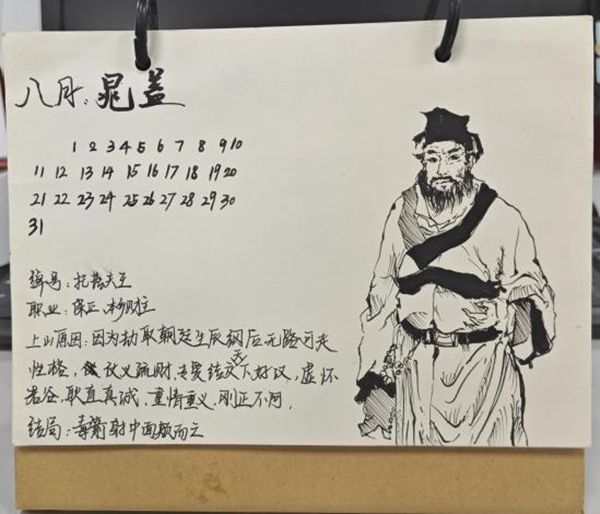 八月：晁盖
1 2 3 4 5 6 7 8 9 10
11 12 13 14 15 16 17 18 19 20
21 22 23 24 25 26 27 28 29 30
31
绰号：托塔天王
职业：保正、本乡财主
上山原因：因为劫取朝廷生辰纲后无路可走
性格，仗义疏财，专爱结交天下好汉，虚怀
若谷，耿直真诚，重情重义，刚正不阿，
结局：毒箭射中面颊而亡